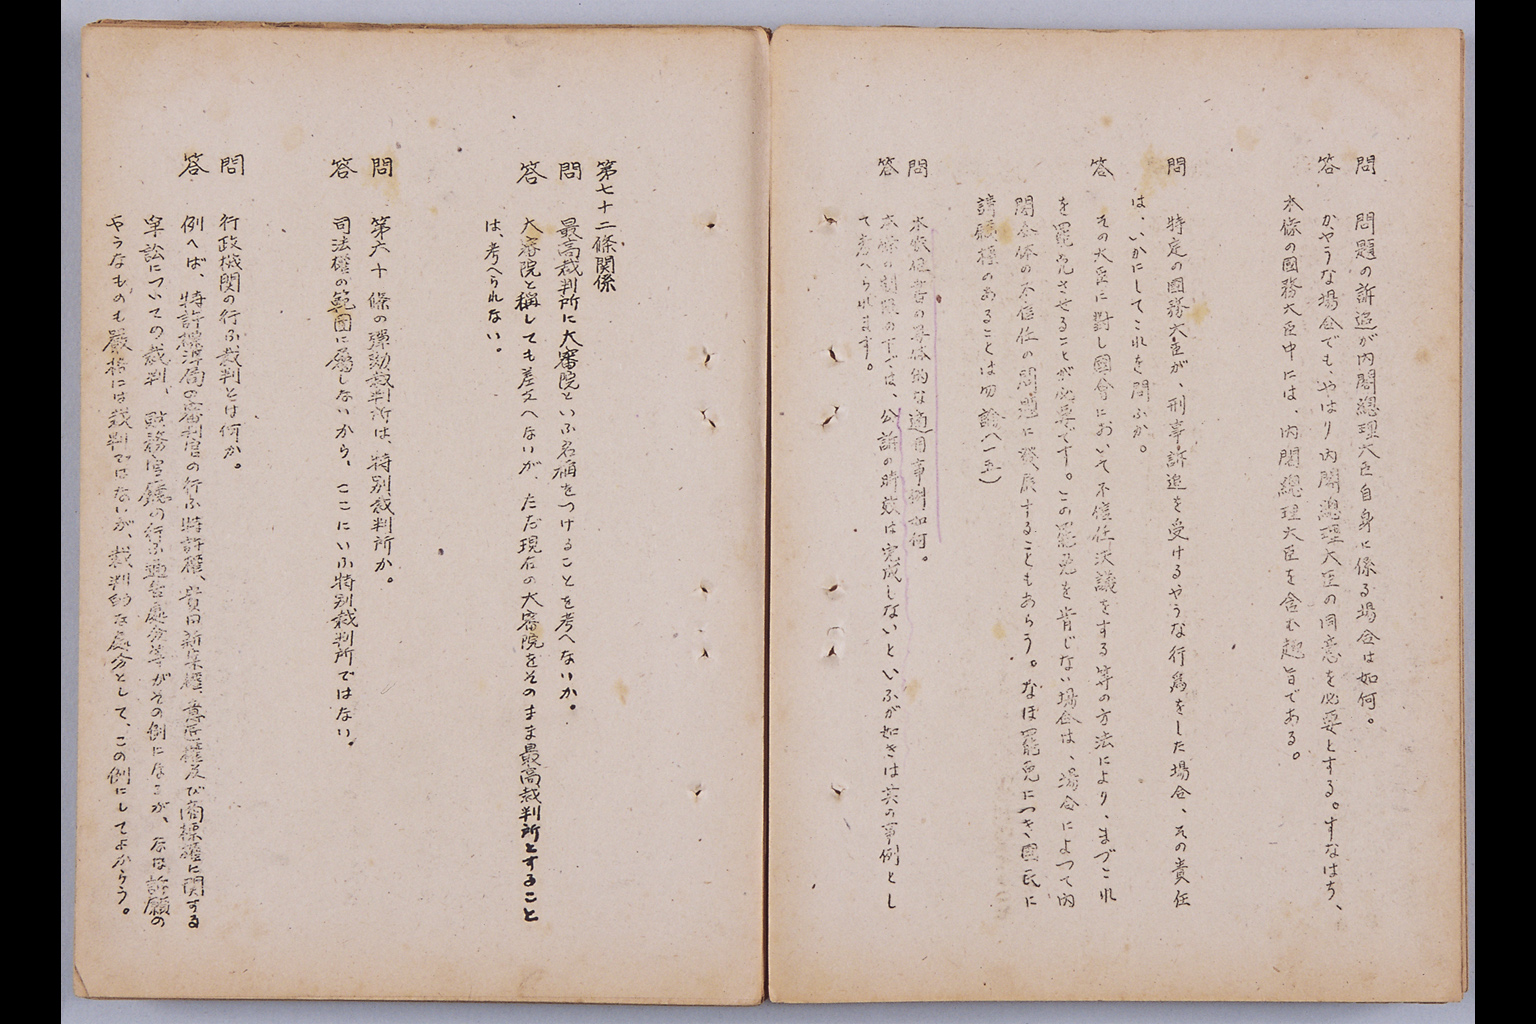 問　問題の訴追が内閣總理大臣自身に係る場合は如何。
答　かやうな場合でも、やはり内閣總理大臣の同意を必要とする。すなはち、
本條の國務大臣中には、内閣總理大臣を含む趣旨である。
問　特定の國務大臣が、刑事訴追を受けるやうな行為をした場合、その責任
は、いかにしてこれを問ふか。
答　その大臣に對し國會において不信任決議をする等の方法により、まづこれ
を罷免させることが必要です。この罷免を肯じない場合は、場合によつて内
閣全体の不信任の問題に發展することもあらう。なほ罷免につき國民に
請願権のあることは勿論（一五）
問　本條但書の具体的な適用事例如何。
答　本條の制限の下では、公訴の時效は完成しないといふが如きは其の事例とし
て考へられます。
第七十二條関係
問　最高裁判所に大審院といふ名稱をつけることを考へないか。
答　大審院と稱しても差支へないが、ただ現在の大審院をそのまま最高裁判所とすること
は、考へられない。
問　第六十條の彈劾裁判所は、特別裁判所か。
答　司法權の範圍に屬しないから、ここにいふ特別裁判所ではない。
問　行政機関の行ふ裁判とは何か。
答　例へば、特許標準局の審判官の行ふ特許權、實用新案權、意匠權及び商標權に関する
争訟についての裁判、財務官廳の行ふ通告處分等がその例になるが、なほ訴願の
やうなものも嚴格には裁判ではないが、裁判的な處分として、この例にしてよからう。